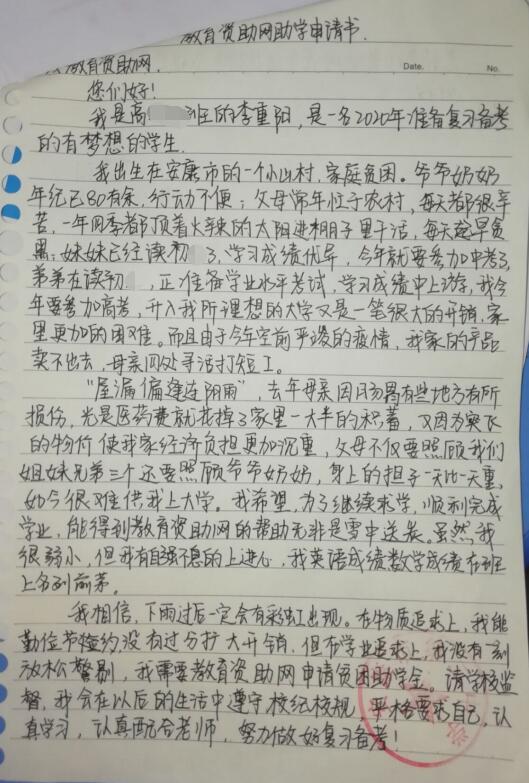 教育资助网助学申请书.
教育资助网.
Date. No.
您们好！
我是高 班的李重阳，是一名2020年准备复习备考
的有梦想的学生.
我出生在安康市的一个小山村，家庭贫困。爷爷奶奶
年纪已80有余，行动不便；父母常年忙于农村，每天都很辛
苦，一年四季都顶着火辣的太阳进棚子里干活，每天起早贪
黑；妹妹已经读初 了，学习成绩优异，今年就要参加中考了，
弟弟在读初 ，正准备学业水平考试，学习成绩中上游，我今
年要参加高考，升入我所理想的大学又是一笔很大的开销，家
里更加的困难。而且由于今年空前严峻的疫情，我家的产品
卖不出去，母亲四处寻活打短工。
“屋漏偏逢连阴雨”，去年母亲因 有些地方有所
损伤，光是医药费就花掉了家里一大半的积蓄，又因为突飞
的物价使我家经济负担更加沉重，父母不仅要照顾我们
姐妹兄弟三个还要照顾爷爷奶奶，身上的担子一天比一天重，
如今很难供我上大学。我希望，为了继续求学，顺利完成
学业，能得到教育资助网的帮助无非是雪中送炭。虽然我
很弱小，但我有自强不息的上进心，我英语成绩数学成绩在班
上名列前茅。
我相信，下雨过后一定会有彩虹出现。在物质追求上，我能
勤俭节俭约，没有过分扩大开销，但在学业追求上，我没有一刻
放松警剔，我需要教育资助网申请贫困助学金。请学校监
督，我会在以后的生活中遵守校纪校规，严格要求自己，认
真学习，认真配合老师，努力做好复习备考！